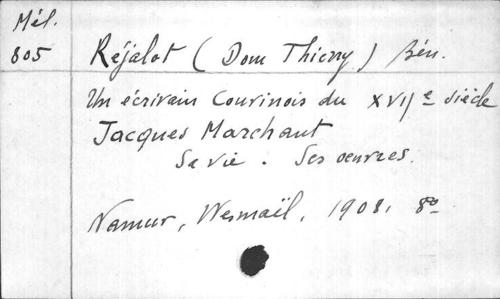 Mél.
805
Réjalot (Dom Thierry) Bén.
Un écrivain Couvinois du XVIIe siècle
Jacques Marchant
Sa vie. Ses oeuvres.
Namur, Wesmaël, 1908, 8°